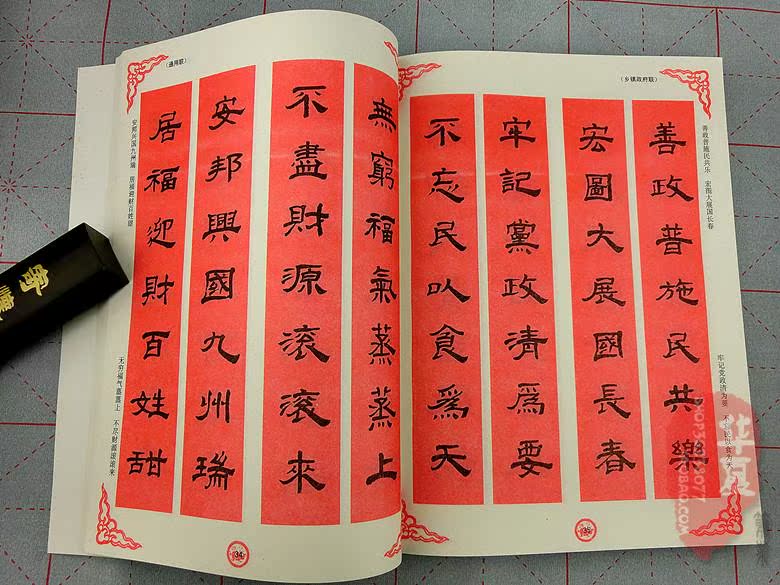 （通用联）
無窮福氣蒸蒸上
不盡財源滚滚來
安邦興國九州瑞
居福迎財百姓甜
安邦兴国九州瑞 居福迎财百姓甜
无穷福气蒸蒸上 不尽财源滚滚来
34
（乡镇政府联）
善政普施民共乐 宏图大展国长春
善政普施民共樂
宏圖大展國長春
牢記黨政清爲要
不忘民以食爲天
牢记党政清为要 不忘民以食为天
35